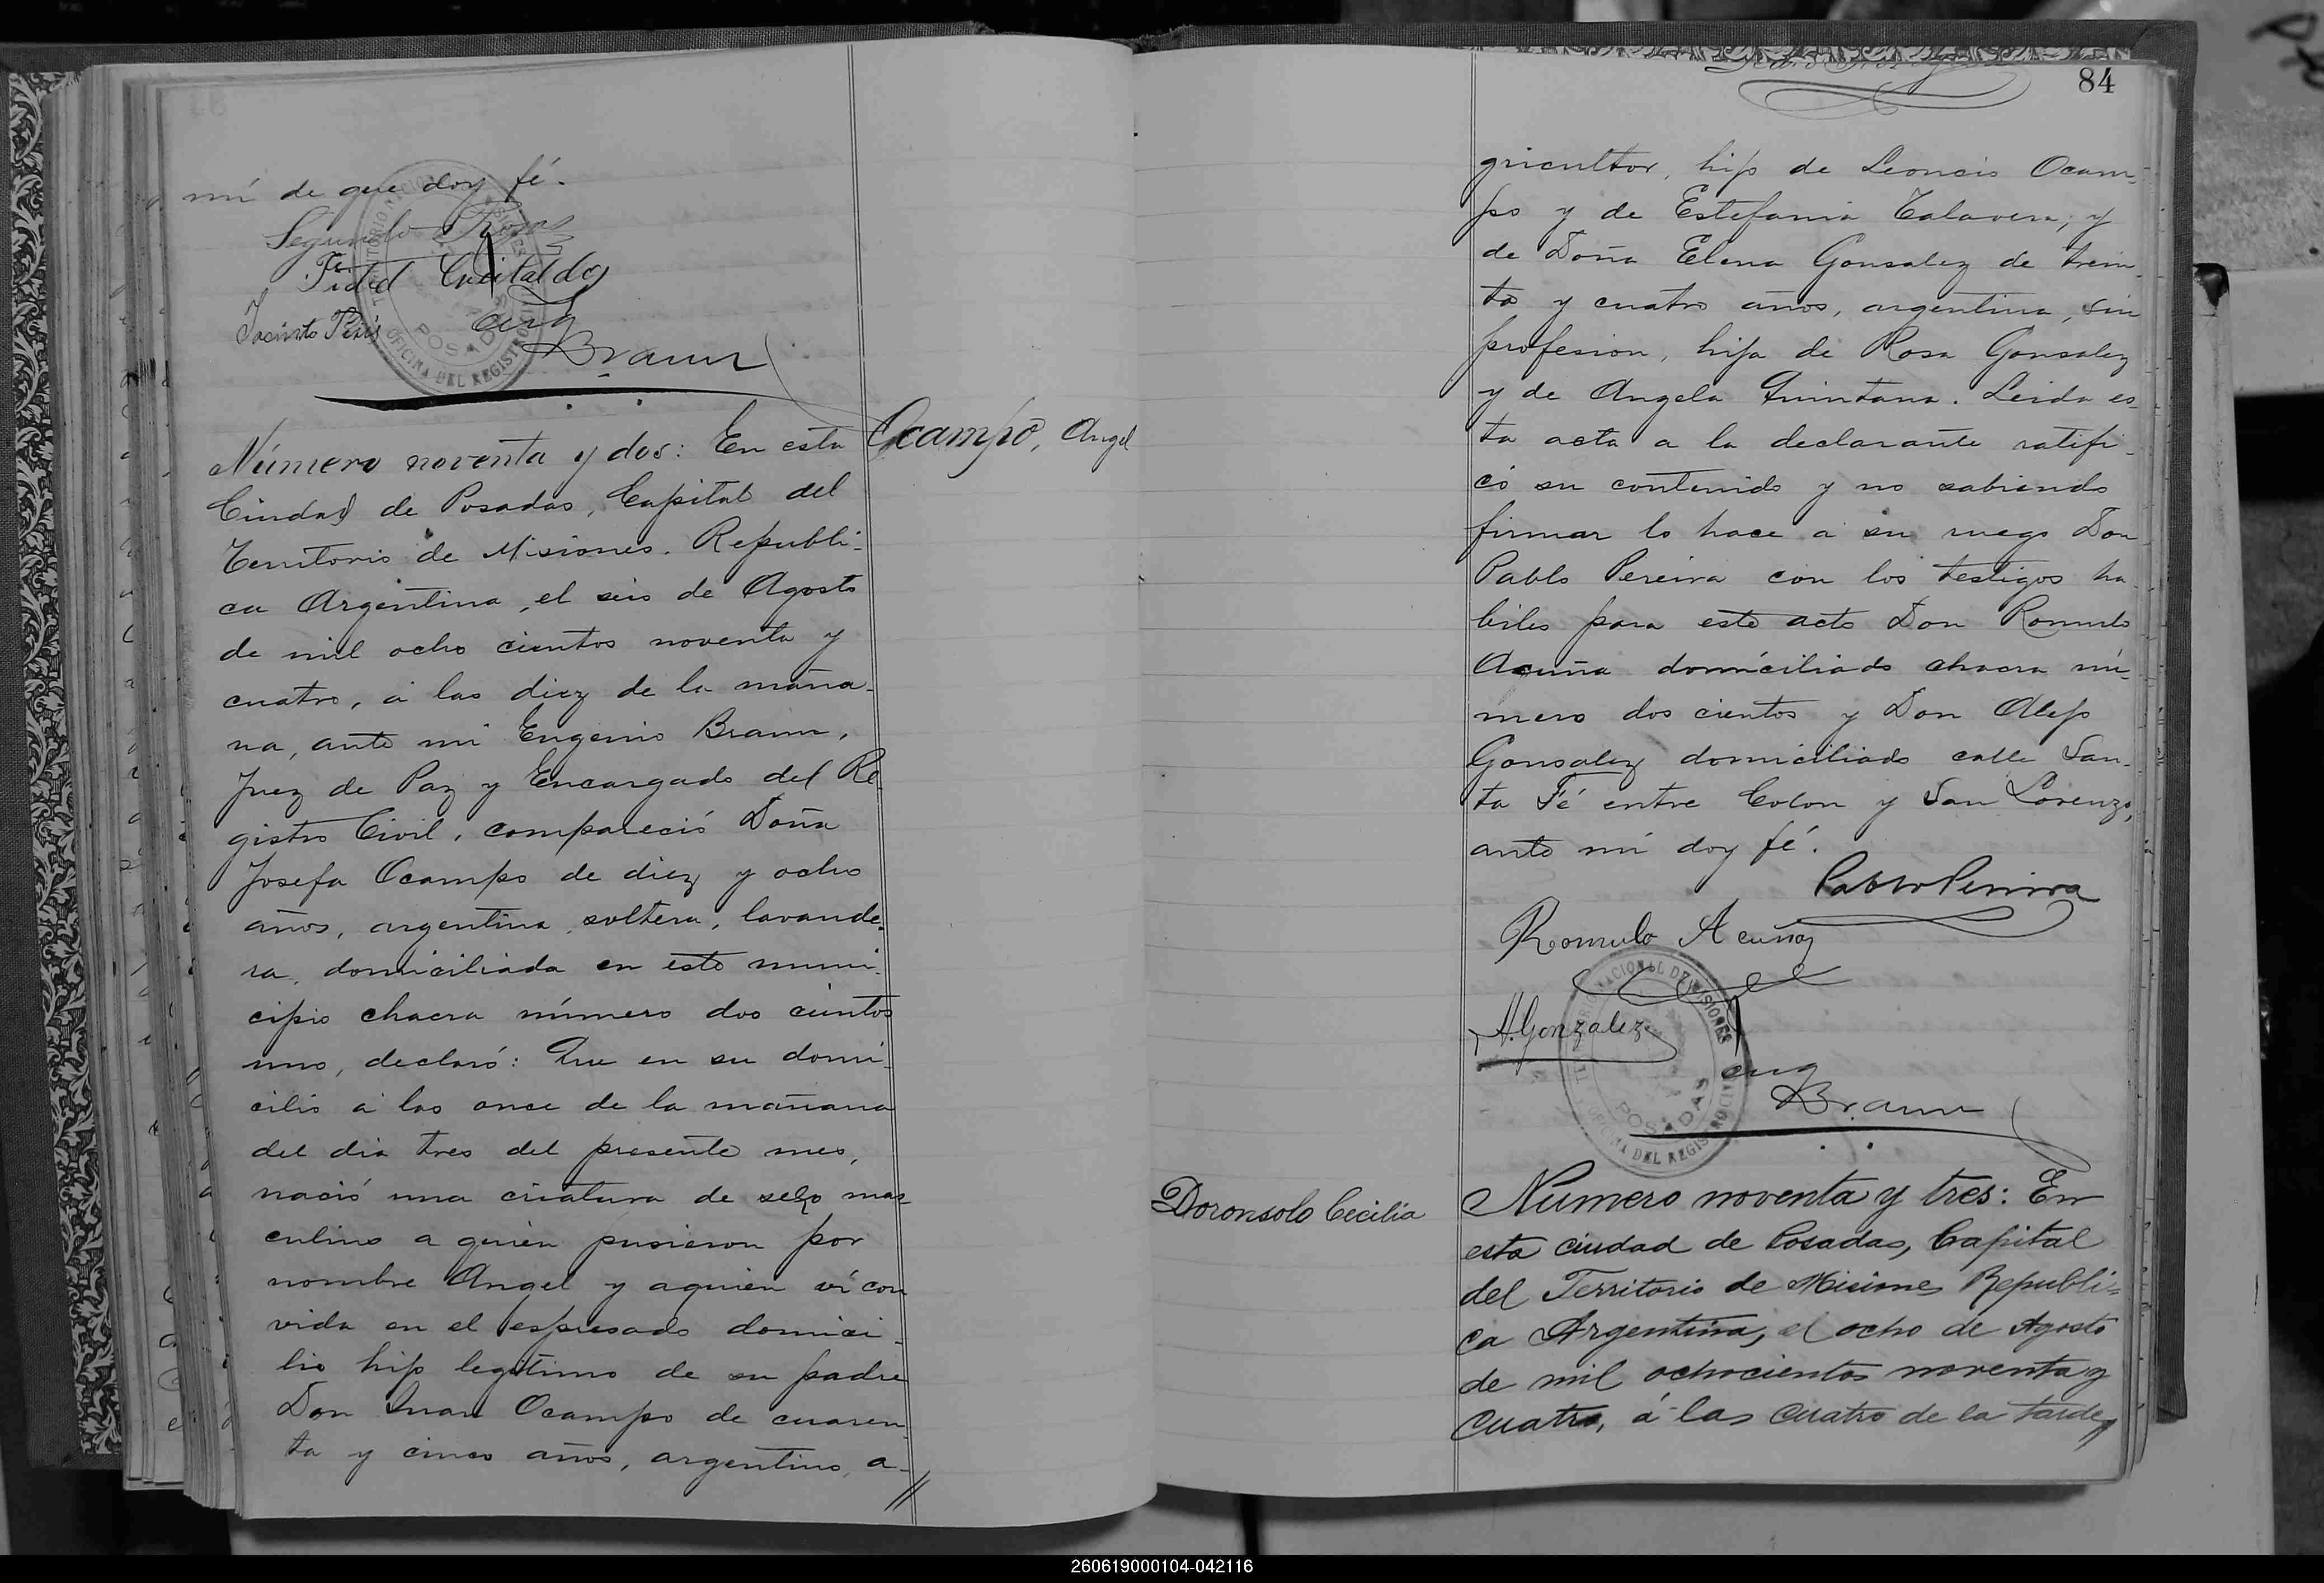 mí de que doy fé.
Segundo Rojas
Fidel
Jacinto
Eug
Braun
TERRITORIO NACIONAL DE MISIONES
POSADAS
OFICINA DEL REGISTRO CIVIL
Ocampo, Angel
Número noventa y dos: En esta
Ciudad de Posadas, Capital del
Territorio de Misiones. Republi-
ca Argentina, el seis de Agosto
de mil ocho cientos noventa y
cuatro, á las diez de la maña-
na, ante mi Eugenio Braun,
Juez de Paz y Encargado del Re
gistro Civil, compareció Doña
Josefa Ocampo de diez y ocho
años, argentina, soltera, lavande-
ra, domiciliada en este muni-
cipio chacra número dos cientos
uno, declaró: Que en su domi-
cilio á las once de la mañana
del dia tres del presente mes,
nació una criatura de sexo mas
culino a quien pusieron por
nombre Angel y aquien ví con
vida en el espresado domici-
lio hijo legítimo de su padre
Don Juan Ocampo de cuaren
ta y cinco años, argentino, a-
//
84
gricultor, hijo de Leoncio Ocam-
po y de Estefania Talavera, y
de Doña Elena Gonsalez de trein-
ta y cuatro años, argentina, sin
profesion, hija de Rosa Gonsalez
y de Angela Quintana. Leida es-
ta acta a la declarante ratifi-
có su contenido y no sabiendo
firmar lo hace á su ruego Don
Pablo Pereira con los testigos ha-
biles para este acto Don Romulo
Acuña domiciliado chacra nú-
mero dos cientos y Don Alejo
Gonsalez domiciliado calle San-
ta Fé entre Colon y San Lorenzo,
ante mí doy fé.
Pablo Pereira
Romulo Acuña
A. Gonzalez
Eug
Braun
TERRITORIO NACIONAL DE MISIONES
POSADAS
OFICINA DEL REGISTRO CIVIL
Doronsolo Cecilia
Número noventa y tres: En
esta ciudad de Posadas, Capital
del Territorio de Misiones Republi=
ca Argentina, el ocho de Agosto
de mil ochocientos noventa y
cuatro, á las cuatro de la tarde,
260619000104-042116